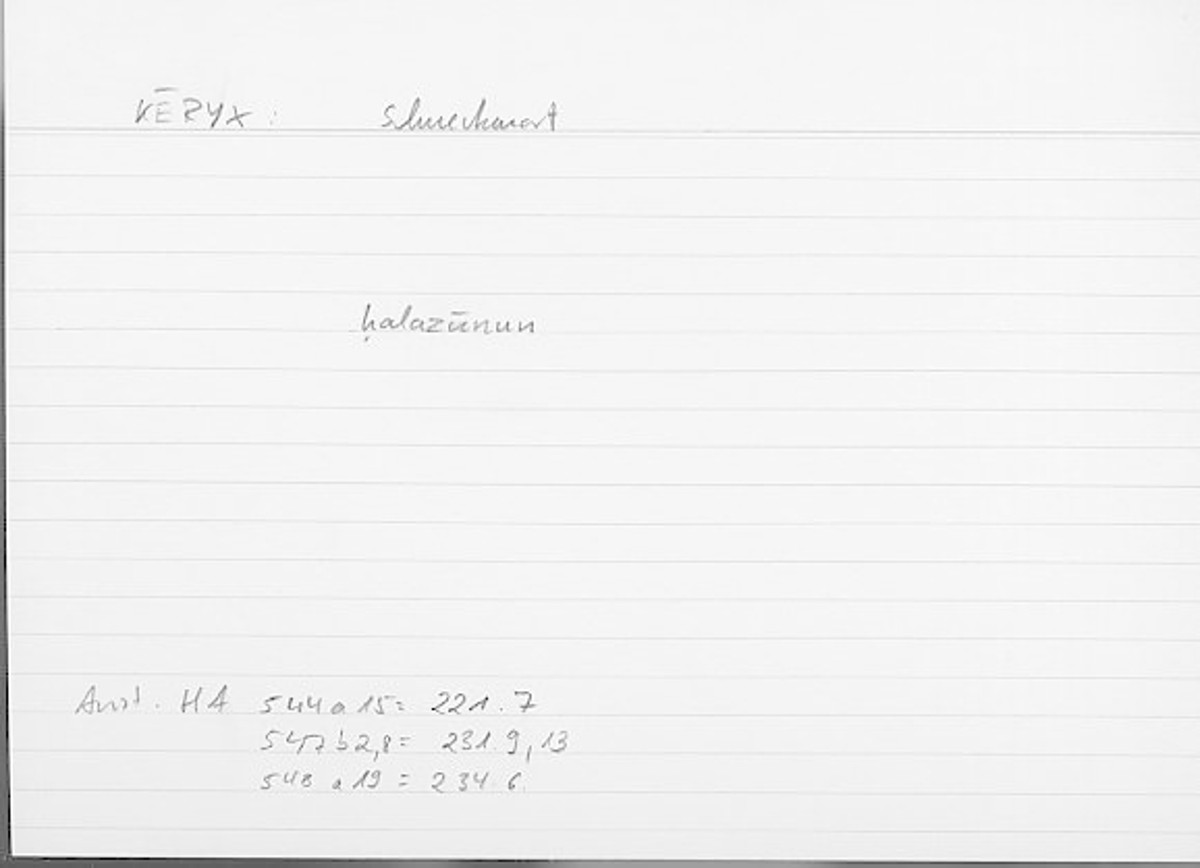 KĒRYX : Schneckenart
ḥalazūnun
Arist. HA 544 a 15 = 221. 7
547 b 2,8 = 231. 9, 13
548 a 19 = 234. 6